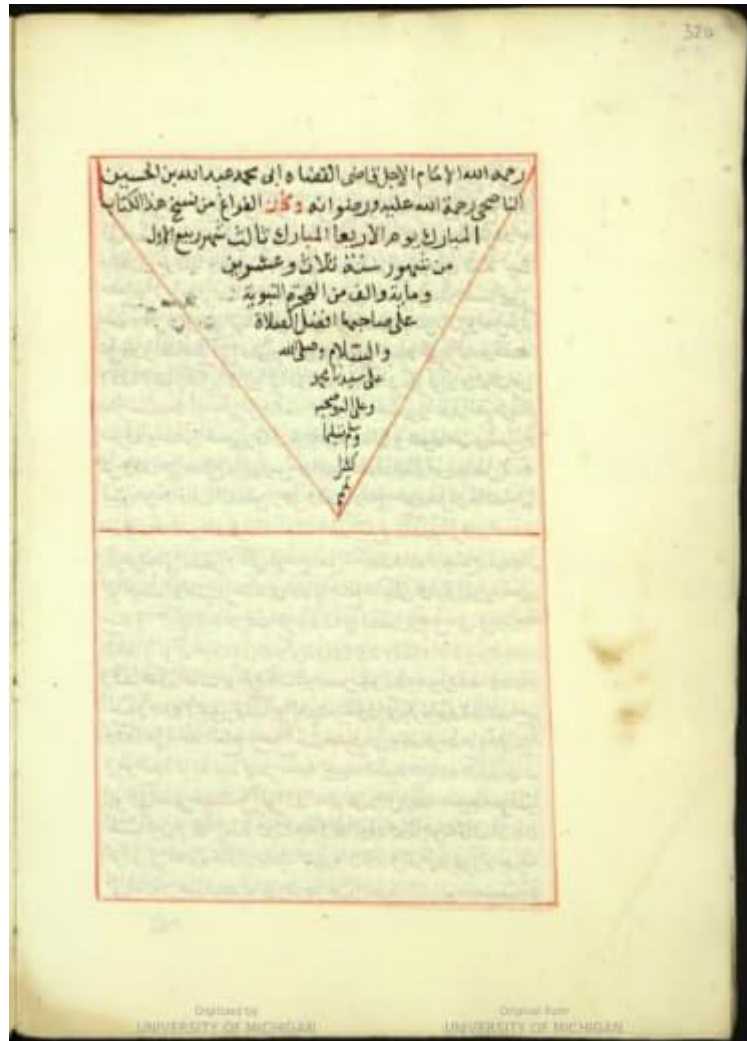 320
رحمه الله الامام الاجل قاضى القضاه ابى محمد عبد الله بن الحسين
الناصحى رحمة الله عليه ورضوانه وكان الفراغ من نسخ هذا الكتاب
المبارك يوم الاربعا المبارك ثالث شهر ربيع الاول
من شهور سنة ثلاث وعشرين
وماية والف من الهجرة النبوية
على صاحبها افضل الصلاة
والسلام وصلى الله
على سيدنا محمد
وعلى اله وصحبه
وسلم تسليما
كثيرا
Digitized by
UNIVERSITY OF MICHIGAN
Original from
UNIVERSITY OF MICHIGAN